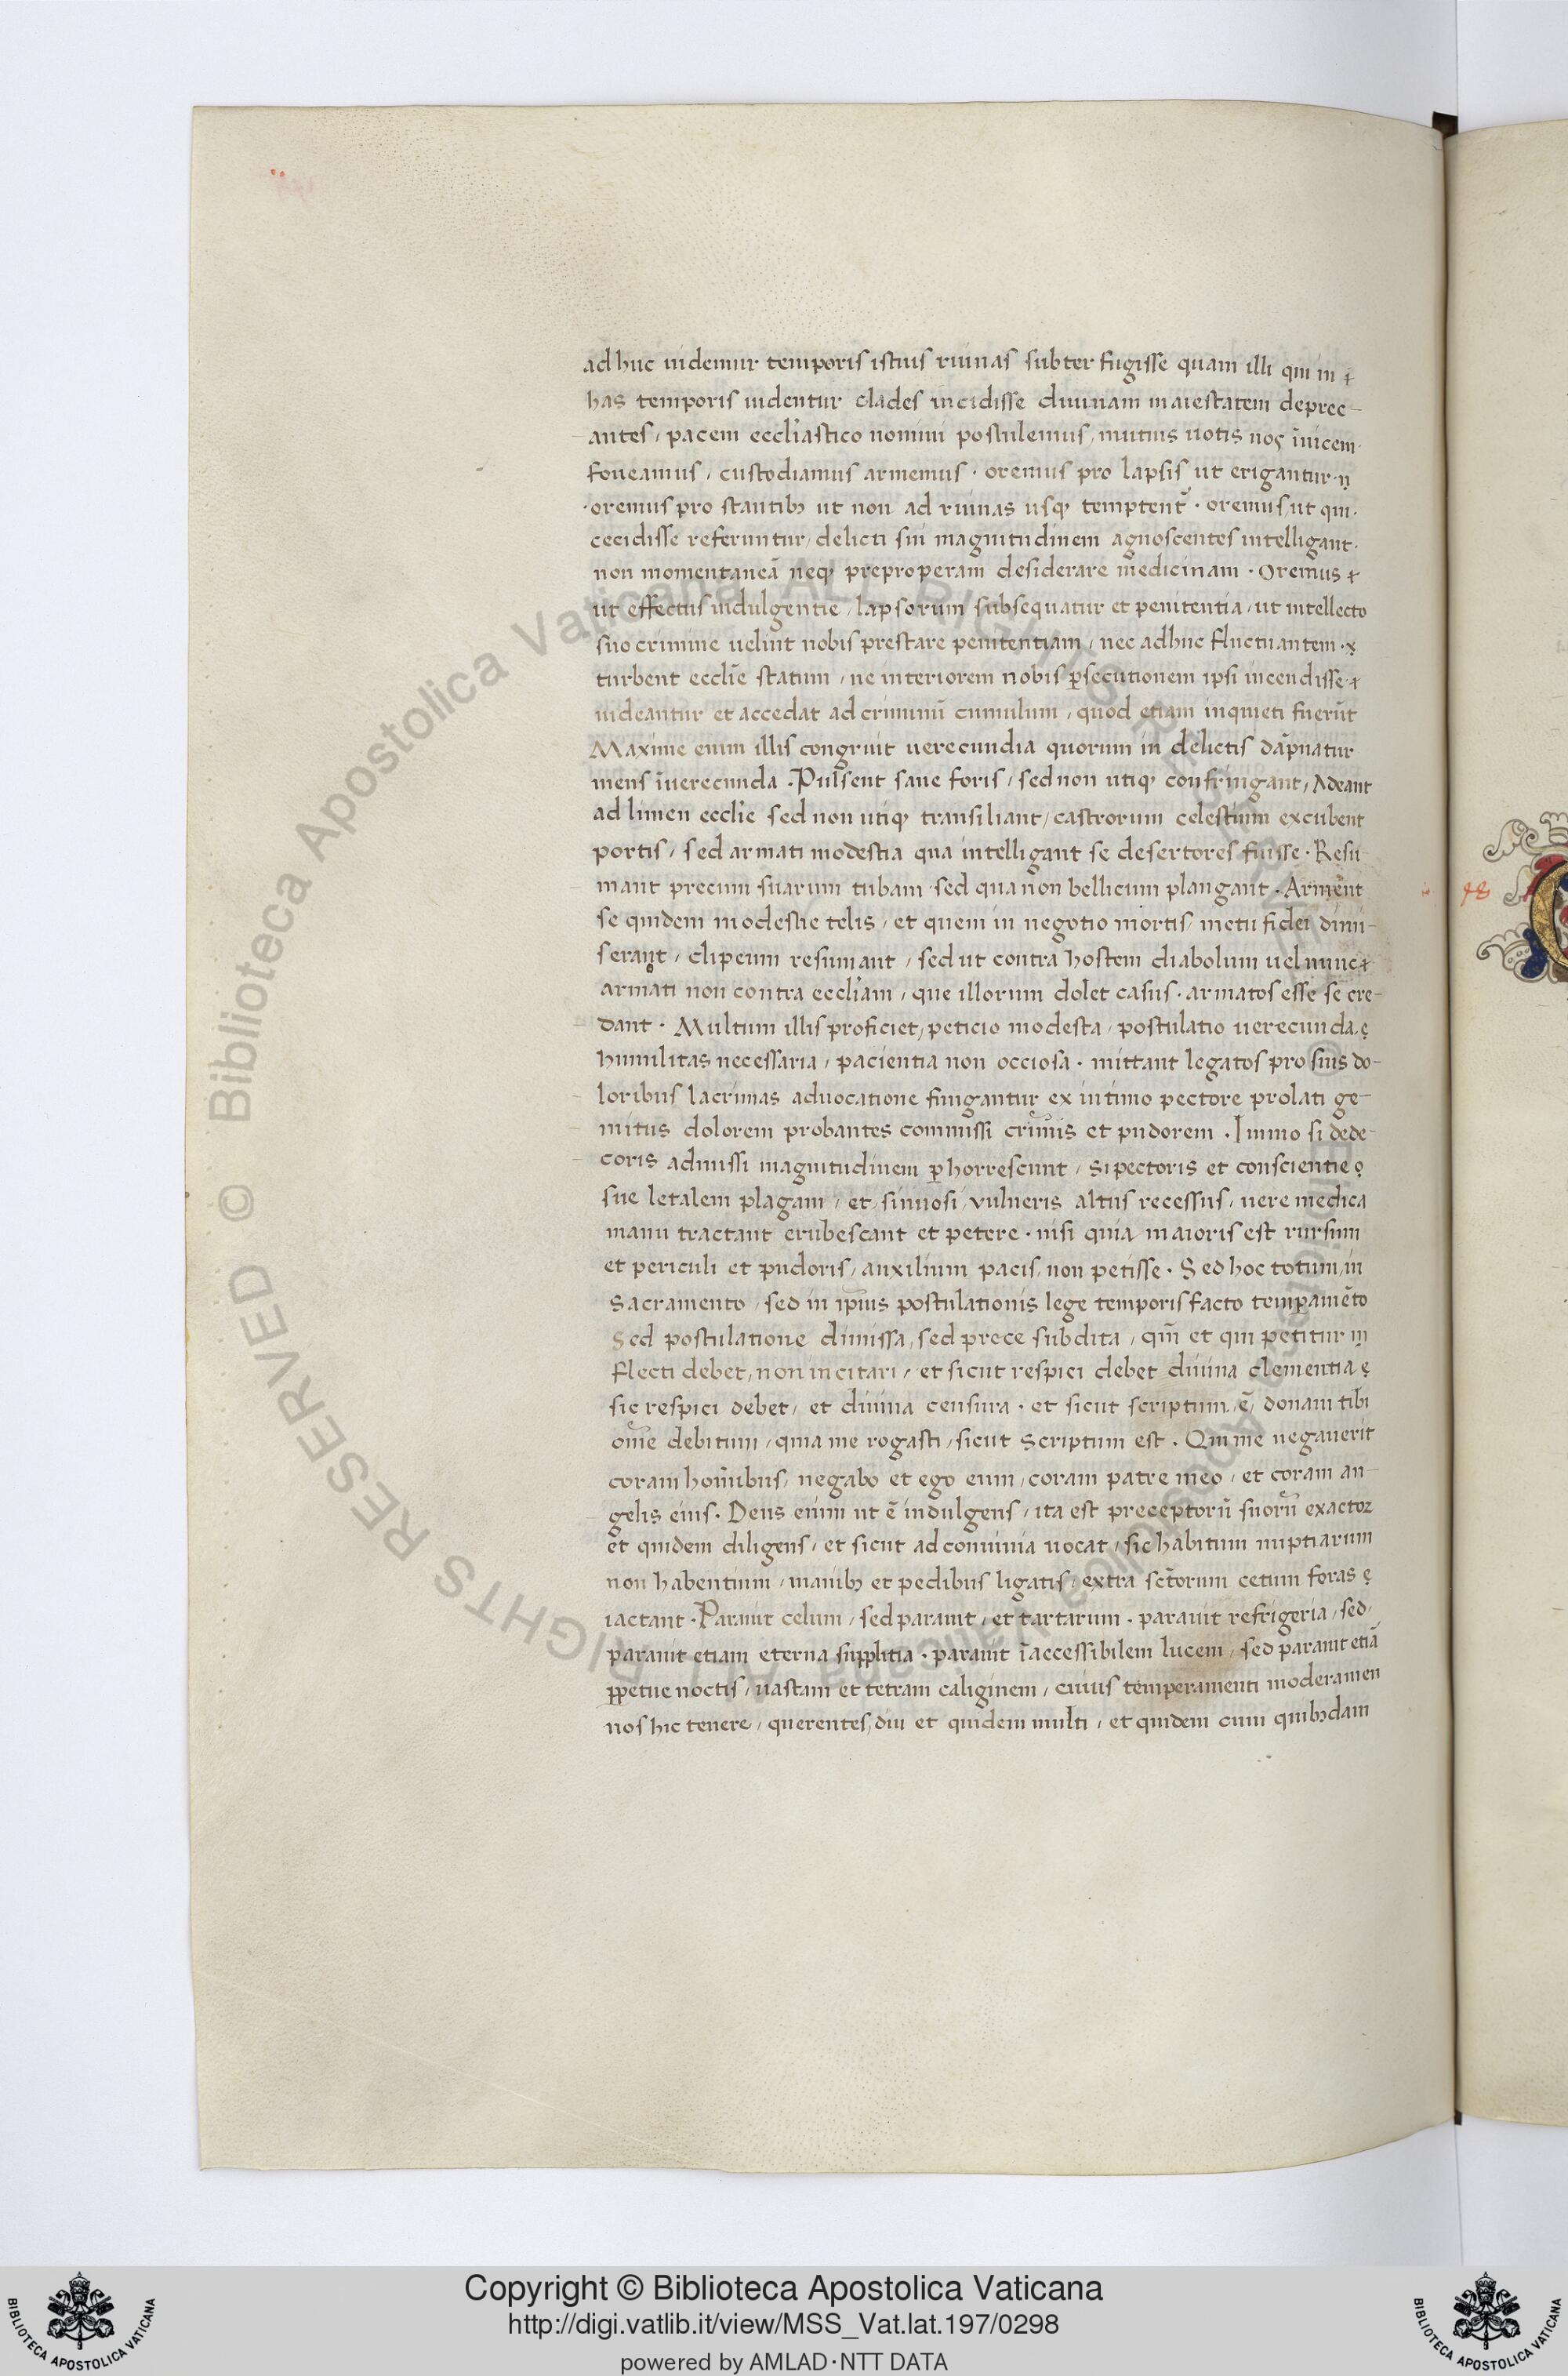 ad huc uidemur temporis istius ruinas subter fugisse quam illi qui in
has temporis uidentur clades incidisse diuinam maiestatem deprec-
antes, pacem eccl'iastico nomini postulemus, mutuis uotis nos īuicem
foueamus, custodiamus armemus · oremus pro lapsis ut erigantur ·
· oremus pro stantibꝫ ut non ad ruinas usqꝫ temptent᷑ · oremus ut qui ·
cecidisse referuntur, delicti sui magnitudinem agnoscentes intelligant ·
non momentaneā neqꝫ preproperam desiderare medicinam · Oremus
ut effectus indulgentie, lapsorum subsequatur et penitentia, ut intellecto
suo crimine uelint nobis prestare penitentiam, nec adhuc fluctuantem ·
turbent eccl̄ie statum, ne interiorem nobis ꝑsecutionem ipsi incendisse
uideantur et accedat ad criminū cumulum, quod etiam inquieti fuerūt
Maxime enim illis congruit uerecundia quorum in delictis dāpnatur
mens īuerecunda · Pulsent sane foris, sed non utiqꝫ confringant, Adeant
ad limen eccl'ie sed non utiqꝫ transiliant, castrorum celestium excubent
portis, sed armati modestia qua intelligant se desertores fuisse · Resu
mant precum suarum tubam sed qua non bellicum plangant · Arment
se quidem modestie telis, et quem in negotio mortis, metu fidei dimi-
serant, clipeum resumant, sed ut contra hostem diabolum uel nunc
armati non contra eccl'iam, que illorum dolet casus · armatos esse se cre-
dant · Multum illis proficiet, peticio modesta, postulatio uerecunda,
humilitas necessaria, pacientia non occiosa · mittant legatos pro suis do-
loribus lacrimas aduocatione fungantur ex intimo pectore prolati ge-
mitus dolorem probantes commissi crīnis et pudorem · Immo si dede-
coris admissi magnitudinem ꝑhorrescunt, si pectoris et conscientie
sue letalem plagam, et, sinuosi, vulneris altus recessus, uere medica
manu tractant erubescant et petere · nisi quia maioris est rursum
et periculi et pudoris, auxilium pacis, non petisse · Sed hoc totum, in
Sacramento, sed in ip̄ius postulationis lege temporis facto temꝑamēto
Sed postulatione dimissa, sed prece subdita, qm̄ et qui petitur
flecti debet, non incitari, et sicut respici debet diuina clementia
sic respici debet, et diuina censura · et sicut scriptum, ē, donaui tibi
om̄e debitum, quia me rogasti, sicut scriptum est · Qui me negauerit
coram hoīnibus, negabo et ego eum, coram patre meo, et coram an-
gelis eius · Deus enim ut ē indulgens, ita est preceptorū suorū exactoꝛ
et quidem diligens, et sicut ad conuiuia uocat, sic habitum nuptiarum
non habentium, manibꝫ et pedibus ligatis, extra sc̄torum cetum foras
iactant · Parauit celum, sed parauit, et tartarum · parauit refrigeria, sed,
parauit etiam eterna supplitia · parauit īaccessibilem lucem, sed parauit etiā
ꝑpetue noctis, uastam et tetram caliginem, cuius temperamenti moderamen
nos hic tenere, querentes, diu et quidem multi, et quidem cum quibꝫdam
48
© Biblioteca Apostolica Vaticana ALL RIGHTS RESERVED
© Biblioteca Apostolica Vaticana ALL RIGHTS RESERVED
Copyright © Biblioteca Apostolica Vaticana
http://digi.vatlib.it/view/MSS_Vat.lat.197/0298
powered by AMLAD·NTT DATA
BIBLIOTECA APOSTOLICA VATICANA
BIBLIOTECA APOSTOLICA VATICANA